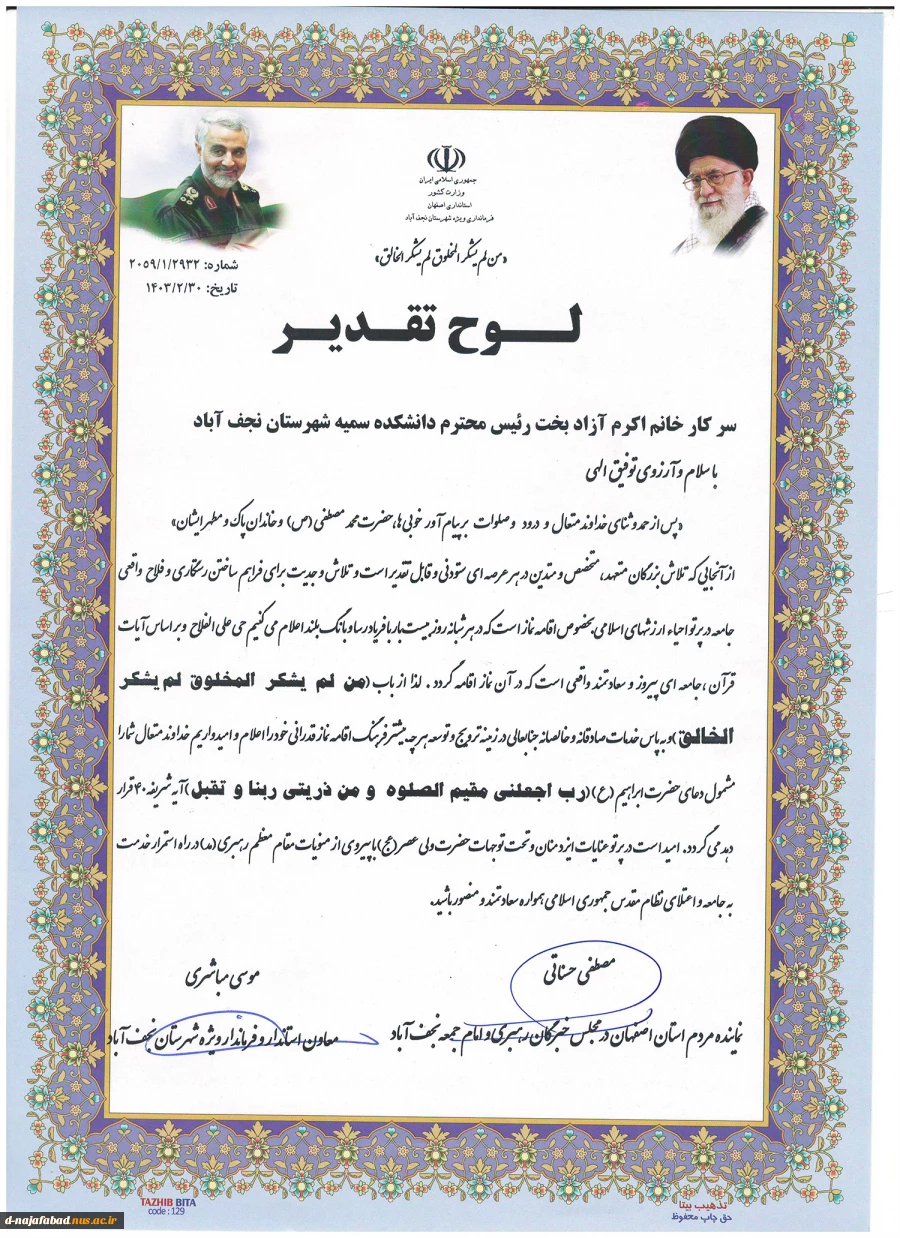 جمهوری اسلامی ایران
وزارت کشور
استانداری اصفهان
فرمانداری ویژه شهرستان نجف آباد
«من لم یشکر المخلوق لم یشکر الخالق»
شماره: ۲۰۵۹/۱/۲۹۳۲
تاریخ: ۱۴۰۳/۲/۳۰
لوح تقدیر
سر کار خانم اکرم آزاد بخت رئیس محترم دانشکده سمیه شهرستان نجف آباد
با سلام و آرزوی توفیق الهی
«پس از حمد و ثنای خداوند متعال و درود و صلوات بر پیام آور خوبی ها، حضرت محمد مصطفی (ص) و خاندان پاک و مطهر ایشان»
از آنجایی که تلاش بزرگان متعهد، متخصص و متدین در هر عرصه ای ستودنی و قابل تقدیر است و تلاش و جدیت برای فراهم ساختن رستگاری و فلاح واقعی
جامعه در پرتو احیاء ارزشهای اسلامی بخصوص اقامه نماز است که در هر شبانه روز بیست بار با فریاد رسا و بانگ بلند اعلام می کنیم حی علی الفلاح و بر اساس آیات
قرآن، جامعه ای پیروز و سعادتمند واقعی است که در آن نماز اقامه گردد. لذا از باب (من لم یشکر المخلوق لم یشکر
الخالق) و به پاس خدمات صادقانه و خالصانه جنابعالی در زمینه ترویج و توسعه هر چه بیشتر فرهنگ اقامه نماز قدرانی خود را اعلام و امیدواریم خداوند متعال شما را
مشمول دعای حضرت ابراهیم (ع) (رب اجعلنی مقیم الصلوه و من ذریتی ربنا و تقبل) آیه شریفه ۴۰ قرار
دهد می گردد. امید است در پرتو عنایات ایزد منان و تحت توجهات حضرت ولی عصر (عج) با پیروی از منویات مقام معظم رهبری (مد) در راه استمرار خدمت
به جامعه و اعتلای نظام مقدس جمهوری اسلامی همواره سعادتمند و منصور باشید.
مصطفی حسناتی
نماینده مردم استان اصفهان در مجلس خبرگان رهبری و امام جمعه نجف آباد
موسی مباشری
معاون استاندار و فرماندار ویژه شهرستان نجف آباد
TAZHIB BITA
code : 129
تذهیب بیتا
حق چاپ محفوظ
d-najafabad.nus.ac.ir